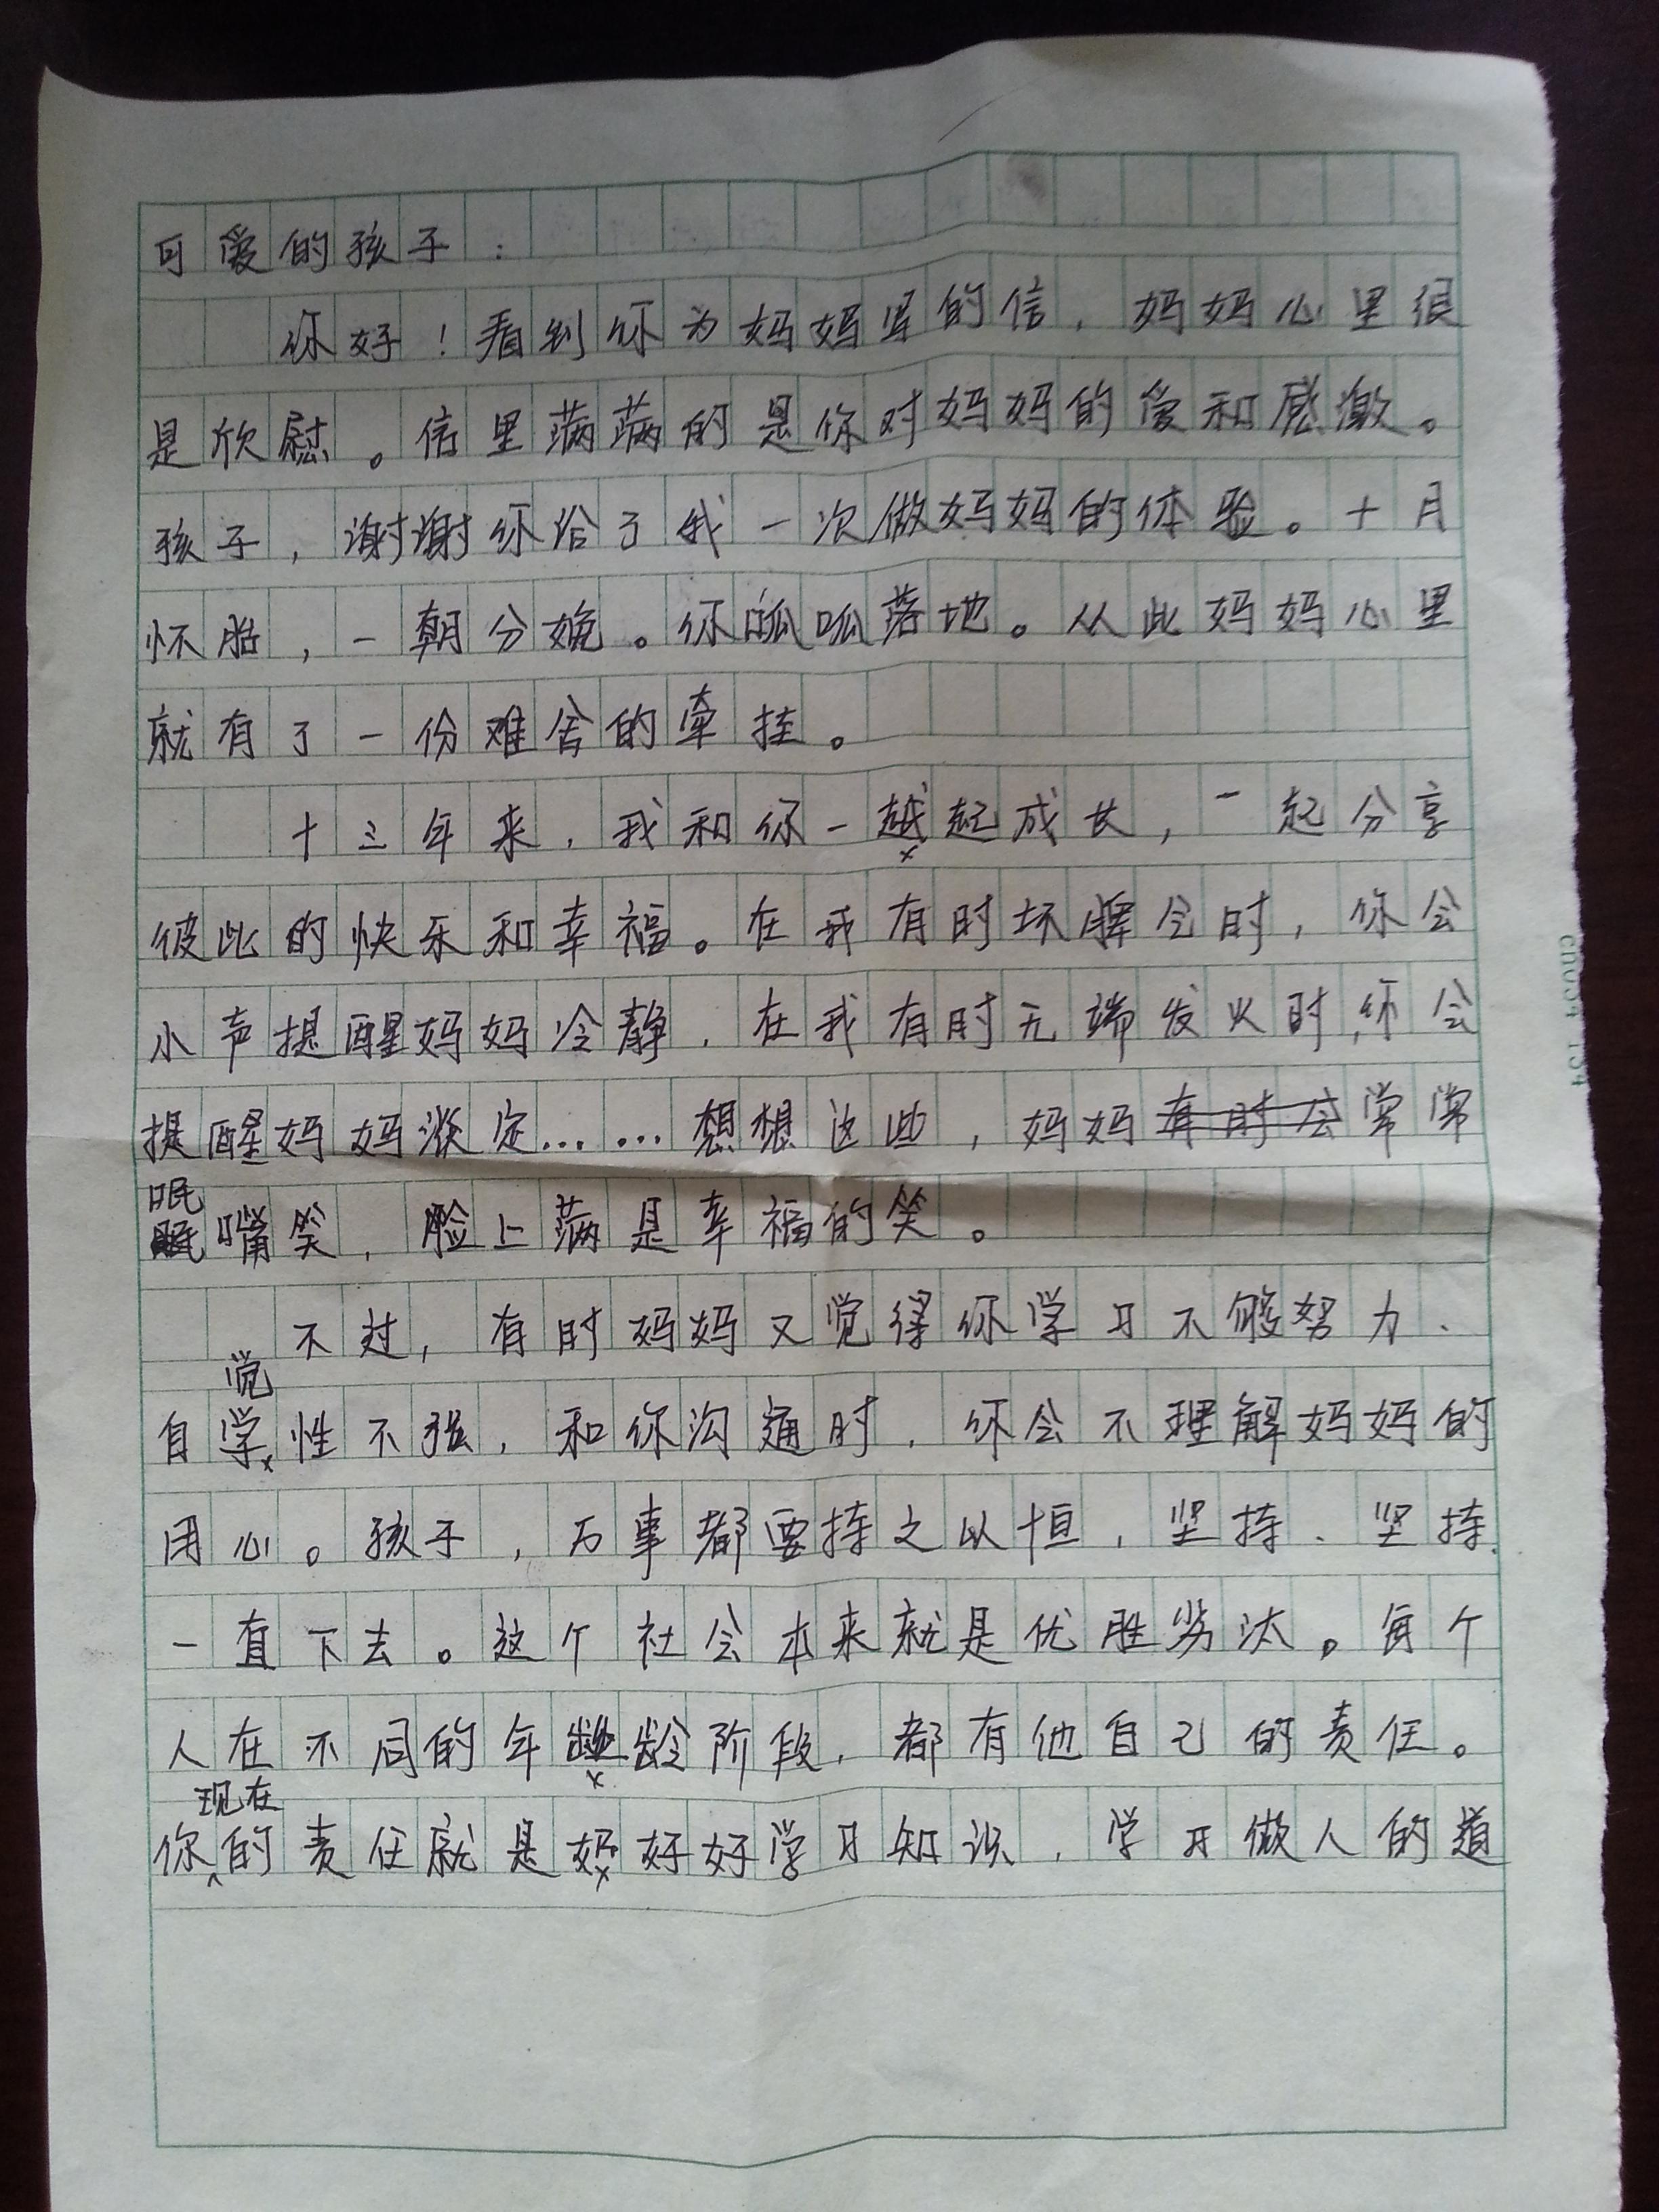 可爱的孩子:
你好!看到你为妈妈写的信,妈妈心里很
是欣慰。信里满满的是你对妈妈的爱和感激。
孩子,谢谢你给了我一次做妈妈的体验。十月
怀胎,一朝分娩。你呱呱落地。从此妈妈心里
就有了一份难舍的牵挂。
十三年来,我和你一起成长,一起分享
彼此的快乐和幸福。在我有时坏脾气时,你会
小声提醒妈妈冷静,在我有时无端发火时,你会
提醒妈妈淡定……想想这些,妈妈常常
眠嘴笑,脸上满是幸福的笑。
不过,有时妈妈又觉得你学习不够努力、
自觉性不强,和你沟通时,你会不理解妈妈的
用心。孩子,万事都要持之以恒,坚持、坚持、
一直下去。这个社会本来就是优胜劣汰。每个
人在不同的年龄阶段,都有他自己的责任。
你现在的责任就是好好学习知识,学习做人的道